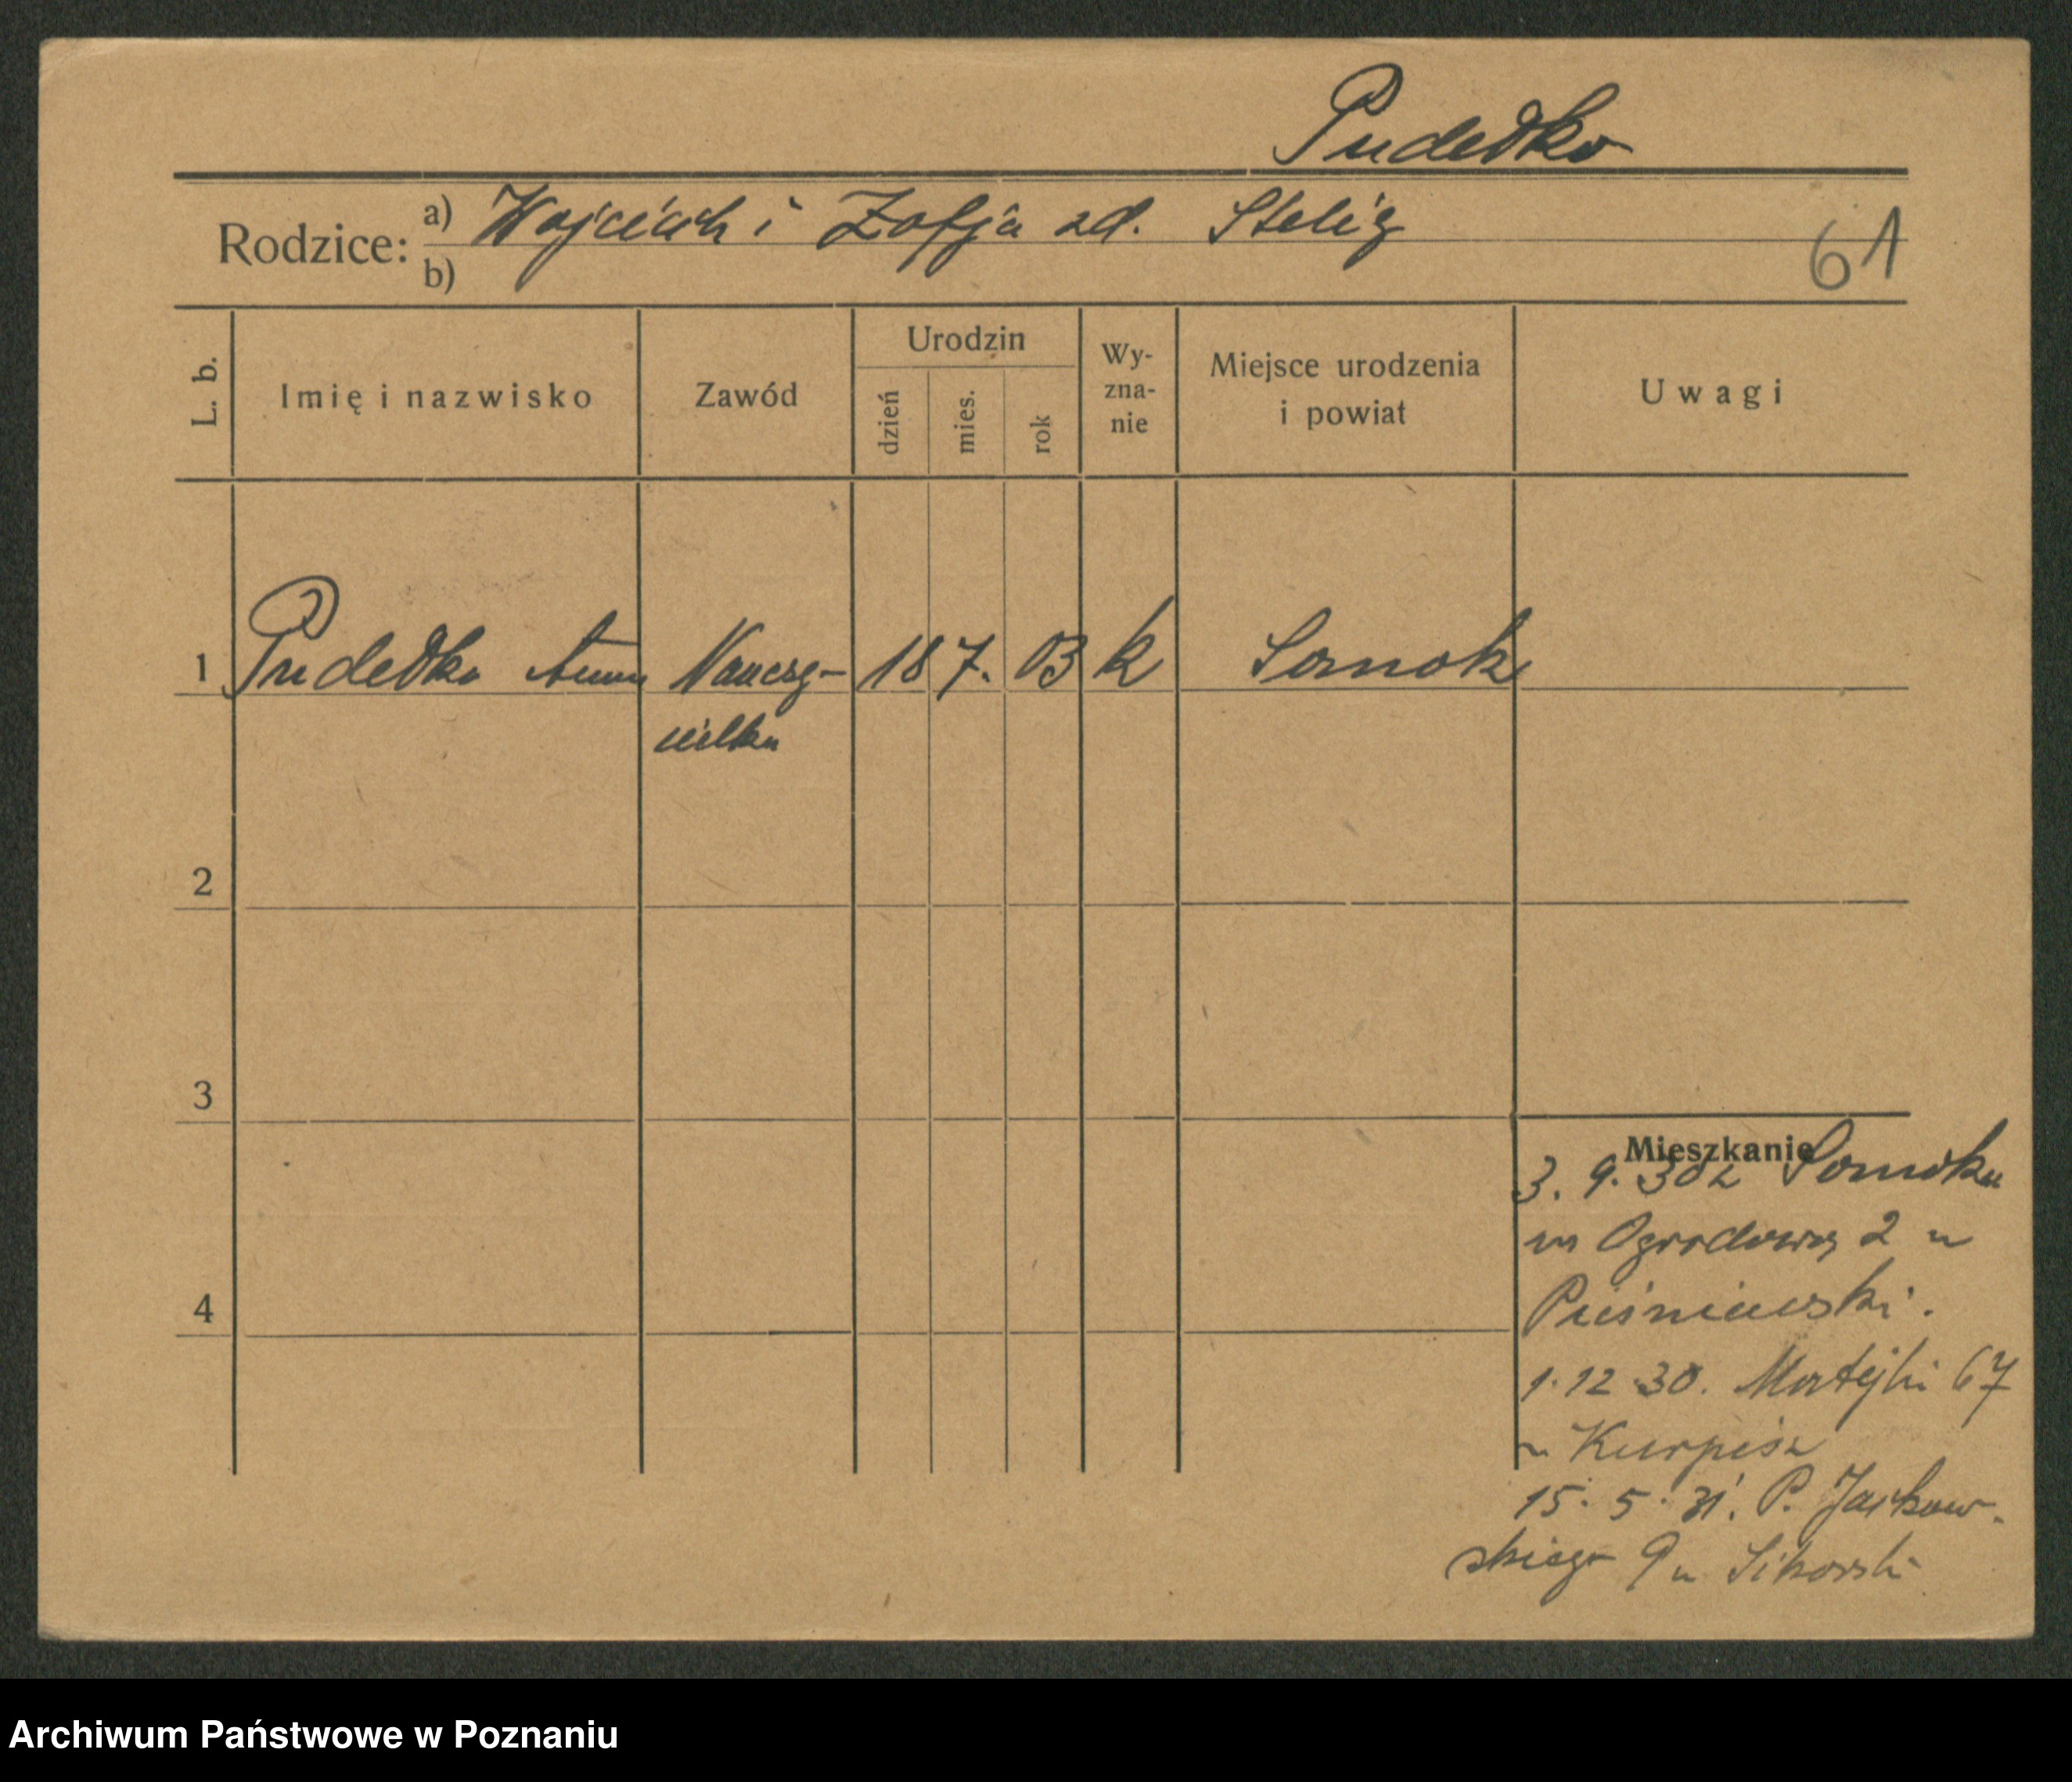 Pudełko
Rodzice: a) Wojciech i Zofja zd. Stelig
b)
61
L. b. Imię i nazwisko Zawód Urodzin dzień mies. rok Wy-zna-nie Miejsce urodzenia i powiat Uwagi
1 Pudełko Anna Nauczy- 18 7. 03 k Sanok
cielka
2
3
4
Mieszkanie
3. 9. 30 z Sanoka
Ogrodowa 2 u
1.12.30. Matejki 67
u Kurpisz
15. 5. 31. P. Jackow-
skiego 9 u Sikorski
Archiwum Państwowe w Poznaniu